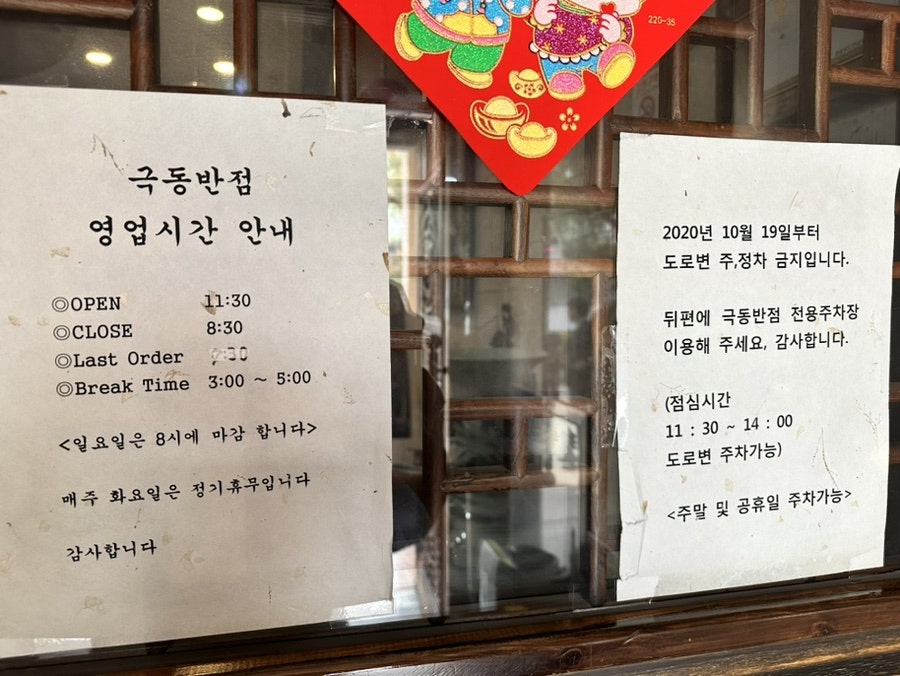 극동반점
영업시간 안내
◎OPEN 11:30
◎CLOSE 8:30
◎Last Order
◎Break Time 3:00 ~ 5:00
<일요일은 8시에 마감 합니다>
매주 화요일은 정기휴무입니다
감사합니다
220-35
2020년 10월 19일부터
도로변 주,정차 금지입니다.
뒤편에 극동반점 전용주차장
이용해 주세요, 감사합니다.
(점심시간
11 : 30 ~ 14 : 00
도로변 주차가능)
<주말 및 공휴일 주차가능>